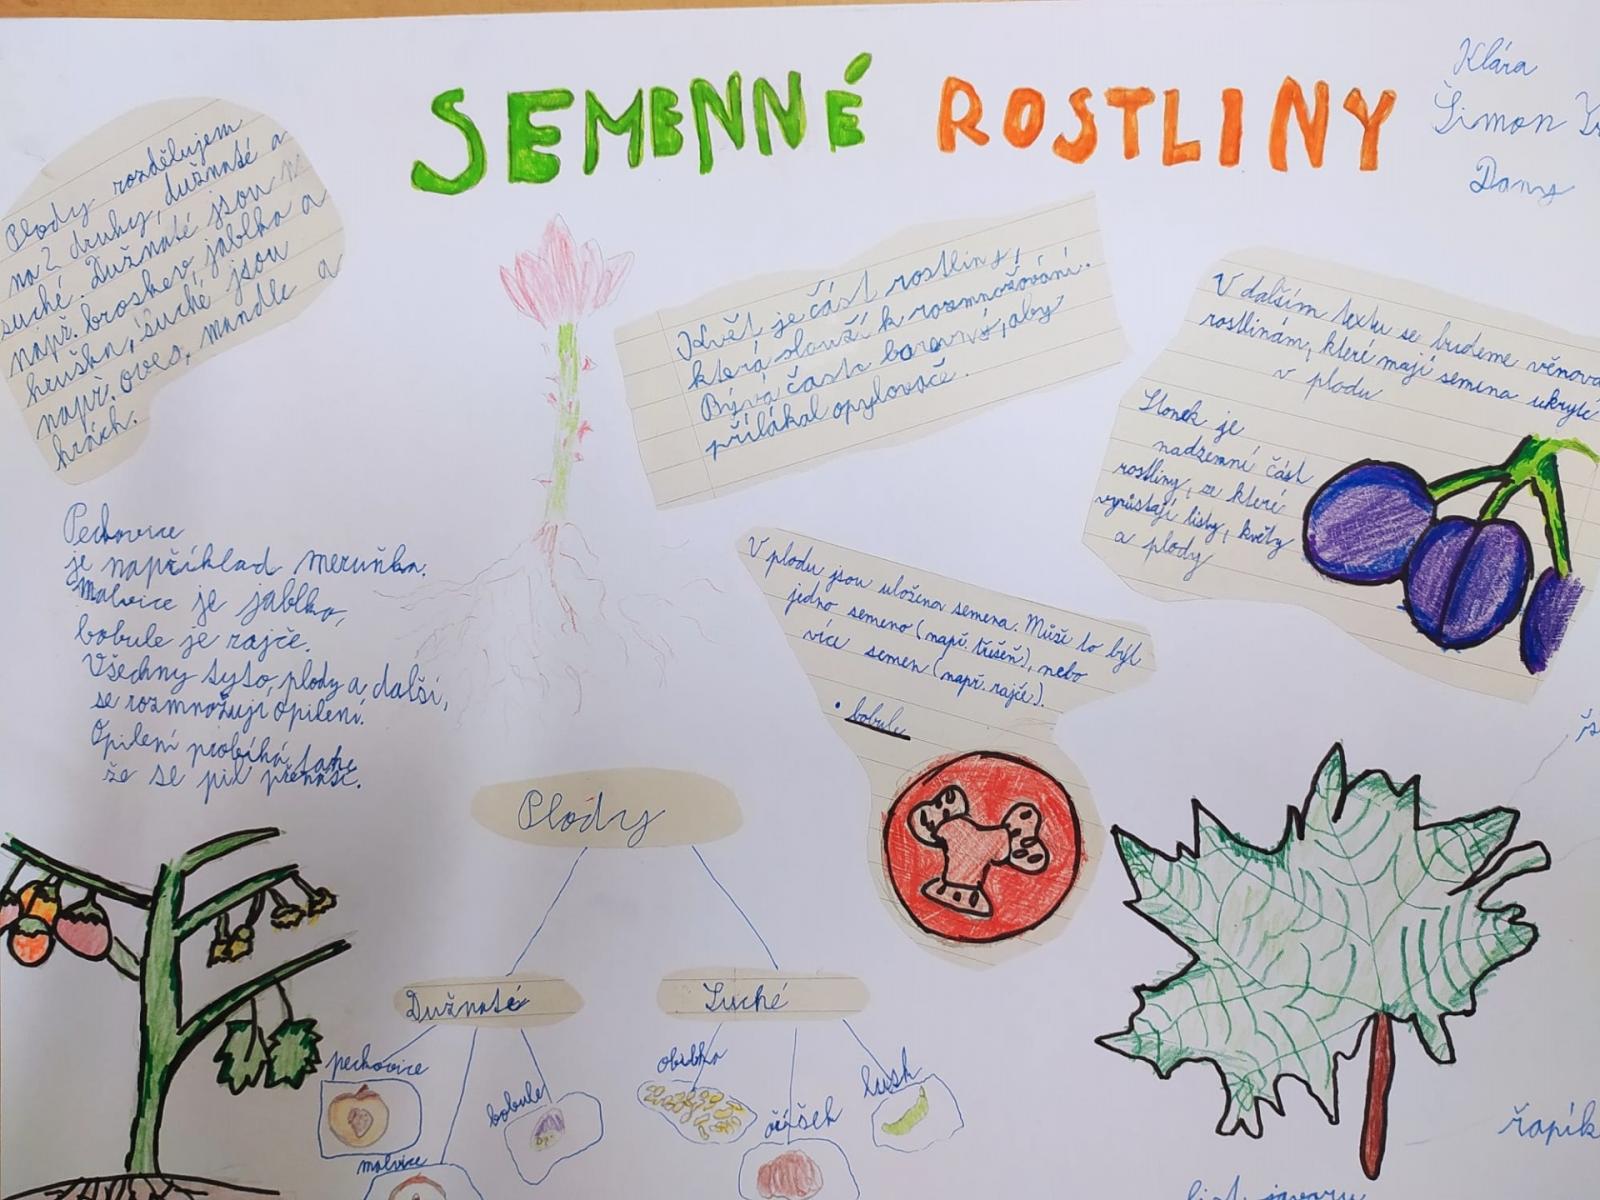 SEMENNÉ ROSTLINY
Klára
Šimon
Dany
Plody rozdělujem
na 2 druhy, dužnaté a
suché. Dužnaté jsou
např. broskev, jablka a
hruška, suché jsou
např. oves, mandle a
hrách.
Květ je část rostliny,
která slouží k rozmnožování.
Bývá často barevný, aby
přilákal opylovače.
V dalším textu se budeme věnova
rostlinám, které mají semena ukryté
v plodu
Stonek je
nadzemní část
rostliny, ze které
vyrůstají listy, květy
a plody
Peckovice
je například meruňka.
Malvice je jablko,
bobule je rajče.
Všechny tyto plody a další,
se rozmnožují opilení.
Opilení probíhá take
že se pil přenáší.
V plodu jsou uložena semena. Můži to být
jedno semeno (např. třešeň), nebo
více semen (např. rajče).
• bobule
Plody
Dužnaté
Suché
peckovice
malvice
bobule
obilka
oříšek
lusk
řapík
list javoru